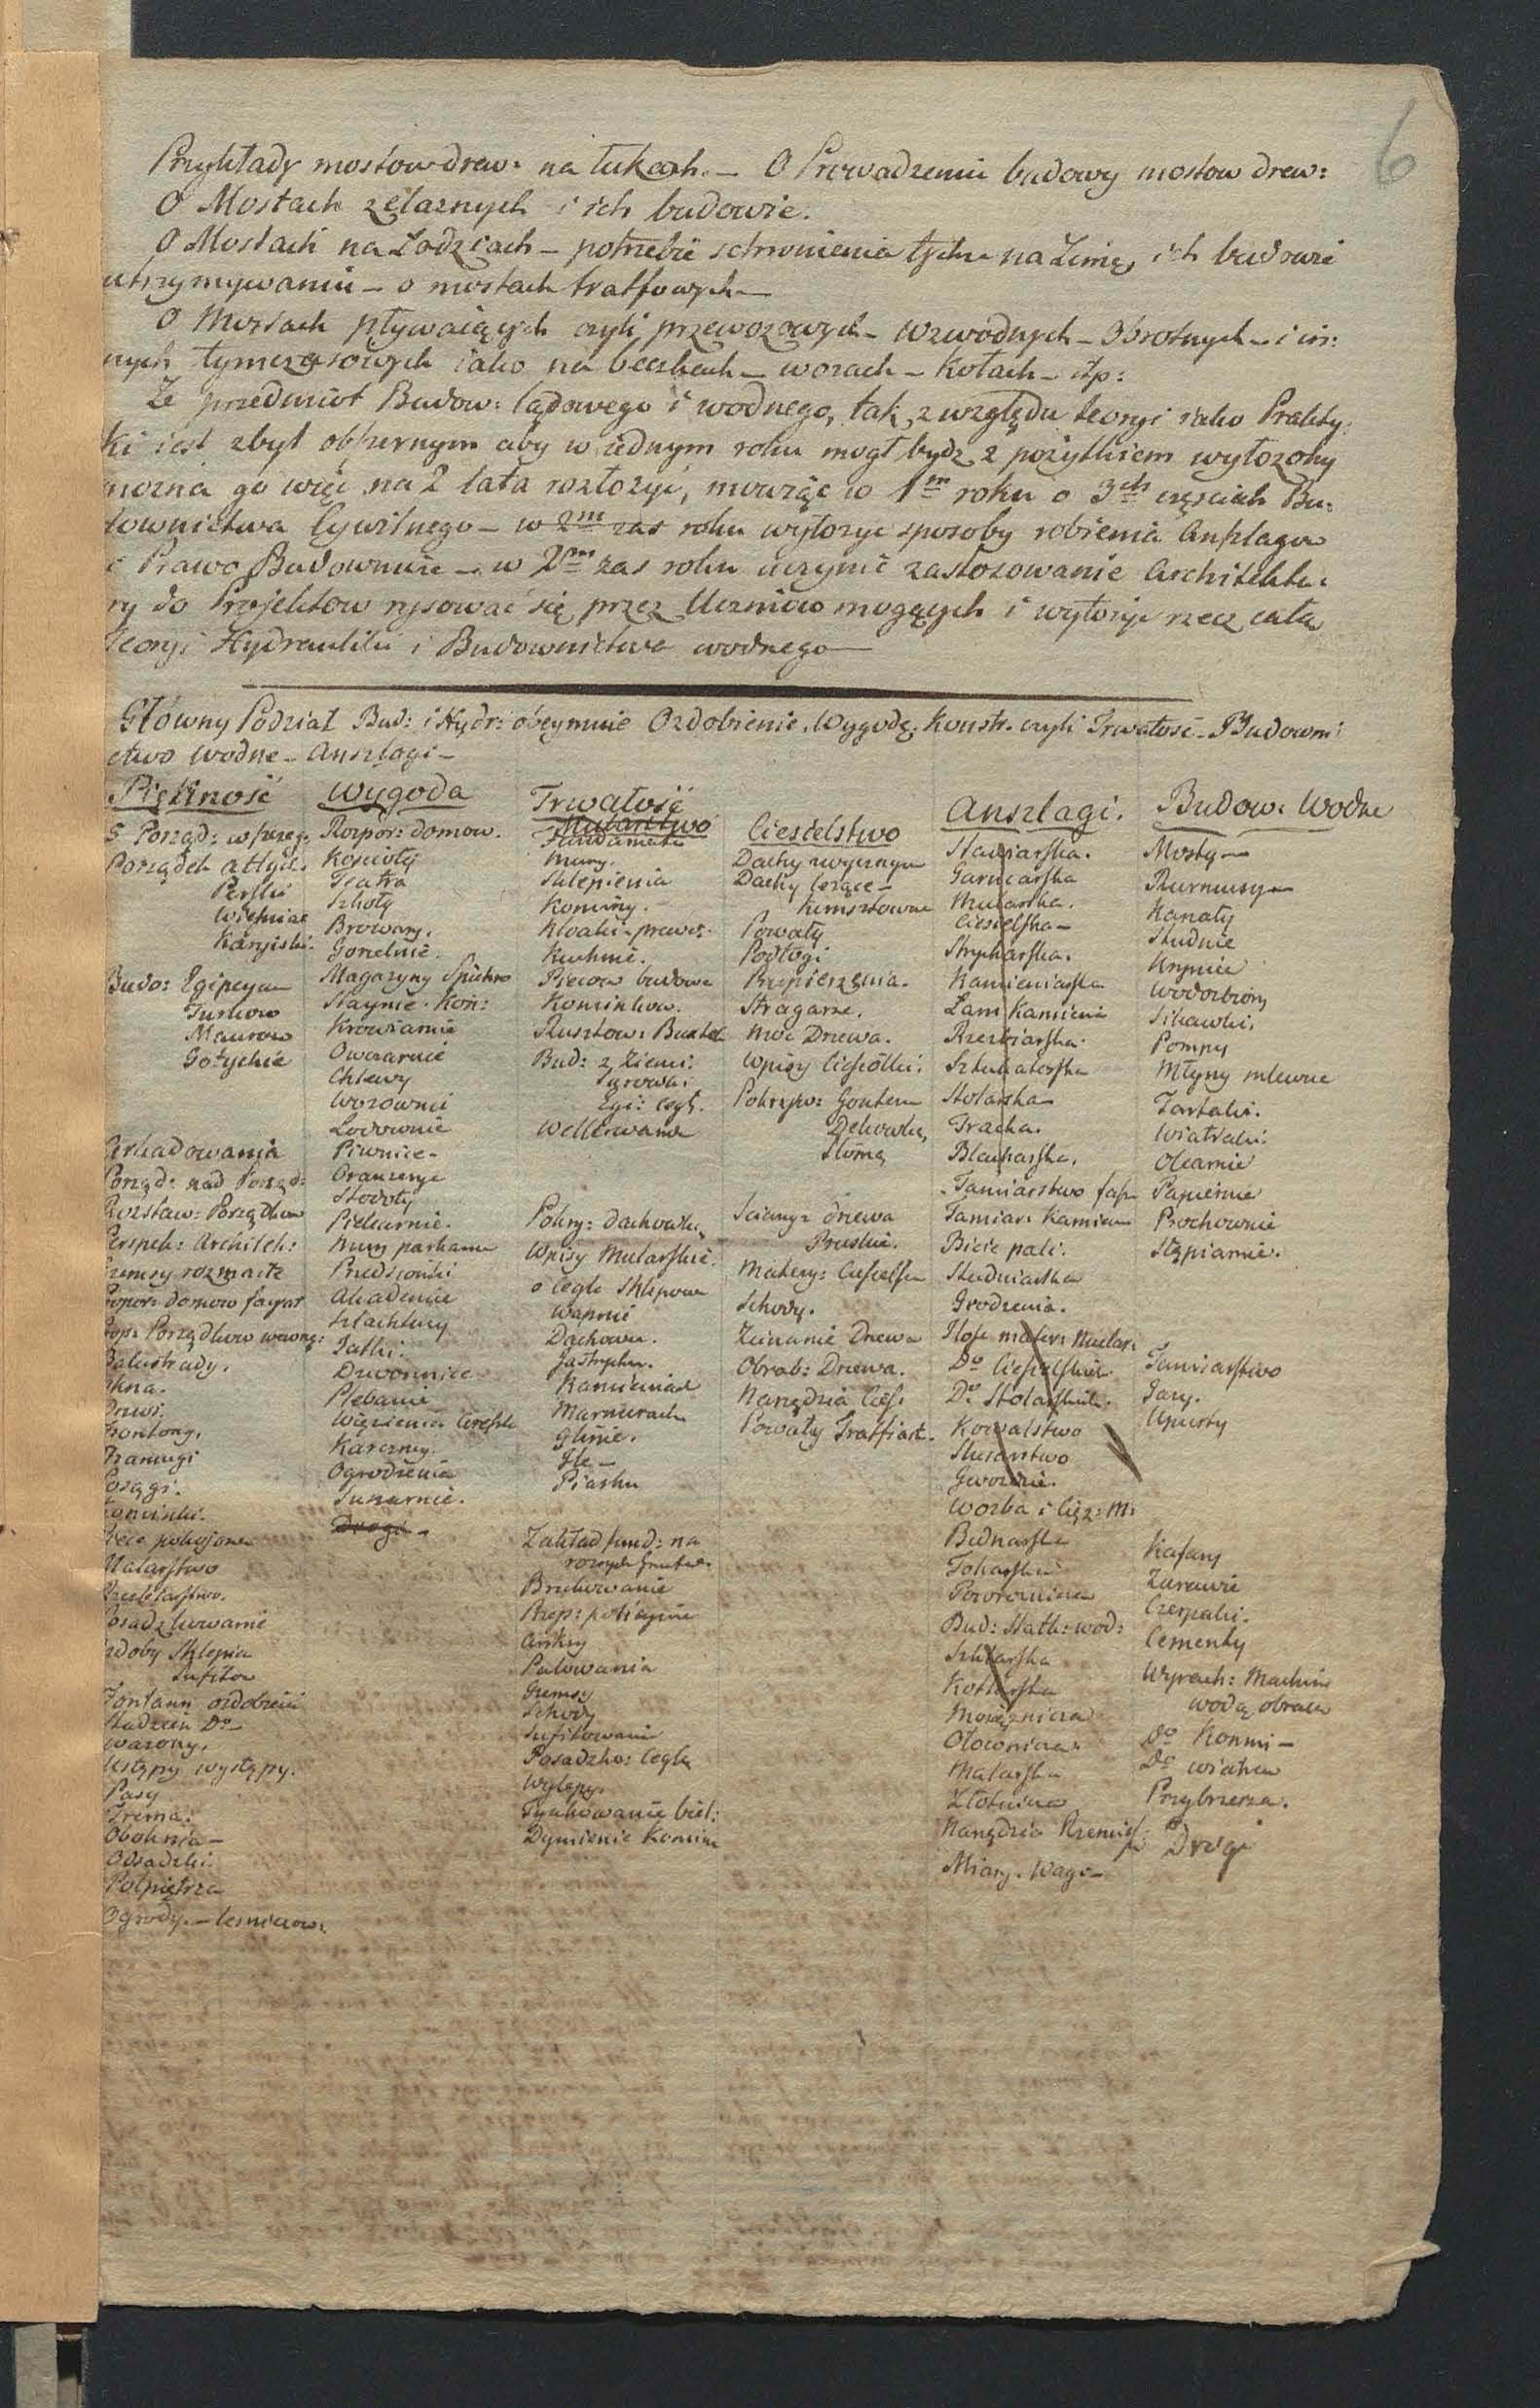 6
Przykłady mostow drew: na łukach. – O Prowadzeniu budowy mostow drew:
O Mostach zelaznych i ich budowie.
O Mostach na Łodziach – potrzebie schronienia tychże na Zimę, ich budowie
utrzymywaniu – o mostach tratfowych –
O Mostach pływaiących czyli przewozowych – wzwodnych – obrotnych – i in:
nych tymczasowych iako na beczkach – worach – Kołach – itp:
Ze przedmiot Budow: lądowego i wodnego, tak z względu teoryi iako Prakty:
ki iest zbyt obszernym aby w iednym roku mogł bydz z pozytkiem wyłozony
mozna go więc na 2 lata rozłozyć, mowiąc w 1m roku o 3ch częsciach Bu:
downictwa Cywilnego – w 2m zas roku wyłozyc sposoby robienia Anszlagow
i Prawo Budownicze – w 2m zas roku uczynić zastosowanie Architektu:
ry do Projektow rysować się przez Uczniow mogących i wyłozyc rzecz całą
Teoryi Hydrauliki i Budownictwa wodnego –
Główny Podział Bud: i Hydr: obeymuie Ozdobienie. Wygodę. Konstr. czyli Trwałosć – Budowni
ctwo wodne – Anszlagi –
Piękność
5 Porząd: w szczeg.
Porządek attycki
Perski
Karyiski.
Budo: Egipcyan
Turkow
Maurow
Gotyckie
Arkadowania
Porząd: nad Porząd:
Rozstaw: Porządkow
Perspek: Architek:
Gzemsy rozmaite
Balustrady.
Okna.
Drzwi.
Frontony.
Framugi
Posągi.
Kominki.
Piece pokojowe
Malarstwo
Posadzkowanie
Ozdoby Sklepia
Sufitow
Fontann ozdobieni
Studzien Do –
Wazony.
Ustępy występy.
Pasy
Oboknia –
Odsadzki.
Połpiętrza
Ogrody. –
Wygoda
Rospor: domow.
Koscioły
Teatra
Szkoły
Browary.
Gorzelnie.
Magazyny Spichrze
Staynie. Koń:
Krowiarnie
Owczarnie
Chlewy
Wozownie
Lodownie
Piwnice –
Oranzerye
Stodoły
Piekarnie.
Mury parkanu
Przedsionki
Akademie
Szlachtuzy
Jatki.
Dzwonnice
Plebanie
Więzienia
Karczmy.
Ogrodzenia
Suszarnie.
Drogi –
Trwałość
Mularstwo
Fundamenta
Mury.
Sklepienia
Kominy.
Kloaki – prewet.
Kuchnie.
Piecow budowa
Kominkow.
Rusztow: Buxtel
Bud: z Ziemi.
Surowa.
Egi: cegł.
Wellerwand
Pokry: dachowką
Wpisy Mularskie.
o Cegle Sklepow
Wapnie
Dachowce.
Jastrychu.
Kamieniach
Marmurach
Glinie.
Ile –
Piasku
Zakład fund: na
roznych Gruntach
Brukowanie
Ankry
Palowania
Gzemsy
Schody
Sufitowanie
Posadzko: Cegłą
Wylepy.
Tynkowanie biel:
Dymienie Komin
Ciesielstwo
Dachy zwyczayne
Dachy lezące –
Kunsztowne
Powały
Podłogi
Przepierzenia.
Stragarze.
Moc Drzewa.
Wpisy Ciesiółki.
Pokryw: Gontem
Dachowką,
Słomą
Sciany z drzewa
Pruskie.
Matery: Ciesielskie
Schody.
Zcinanie Drzewa
Obrob: Drzewa.
Narzędzia Cieś.
Powały Tratfiast.
Anszlagi.
Garncarska
Mularska.
Ciesielska –
Strycharska.
Kamieniarska
Łam Kamieni
Rzezbiarska.
Sztukatorska
Stolarska
Tracka.
Blacharska.
Tamiarstwo fasz
Tamiar: Kamien
Bicie pali.
Studniarska
Grodzenia.
Ilość mater: Mular:
Do Ciesielskich.
Do Stolarskich.
Kowalstwo
Slusarstwo
Gwozdzie.
Wozba i Cięz: M:
Bednarska
Tokarska
Powroznicza
Bud: Statk: wod:
Szklarska
Kotlarska
Mosięznicza
Ołownicza
Malarska
Złotnicza
Narzędzia Rzemieś
Miary. Wagi –
Budow: Wodne
Mosty –
Kanały
Studnie
Krynice
Wodozbiory
Sikawki.
Pompy
Młyny mlewne
Tartaki.
Wiatraki.
Olearnie
Papiernie
Prochownie
Stępiarnie.
Tamiarstwo
Jazy.
Upusty
Kafary
Zurawie
Czerpaki.
Cementy
Wyrach: Machin
wodą obraca
Do Konmi –
Do wiatrem
Przybrzeza.
Drogi